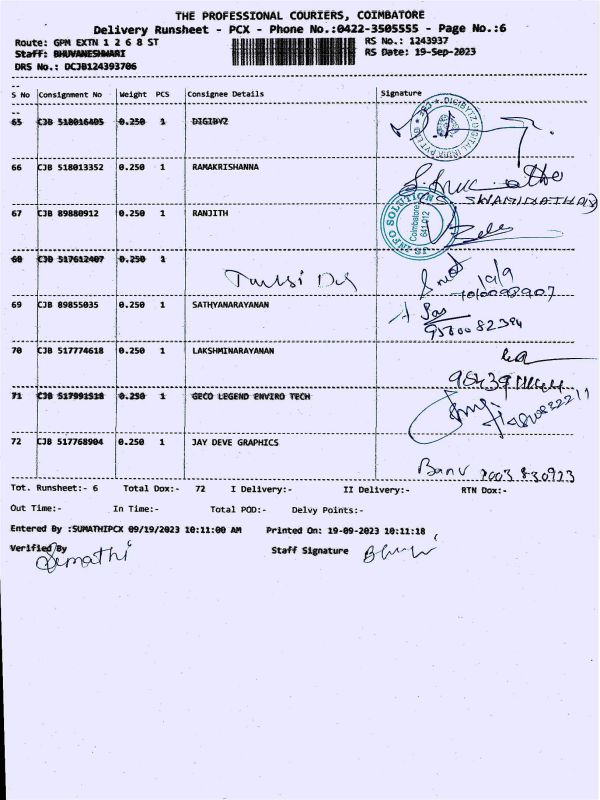 THE PROFESSIONAL COURIERS, COIMBATORE
Delivery Runsheet - PCX - Phone No.:0422-3505555 - Page No.:6
Route: GPM EXTN 1 2 6 8 ST
RS No.: 1243937
Staff: BHUVANESHWARI
RS Date: 19-Sep-2023
DRS No.: DCJB124393706
S No Consignment No Weight PCS Consignee Details Signature
65 CJB 518016405 0.250 1 DIGIBYZ
66 CJB 518013352 0.250 1 RAMAKRISHANNA
SWAMINATHAN
67 CJB 89880912 0.250 1 RANJITH
JS INFO SOLUTION
Coimbatore
641 012
68 CJB 517612407 0.250 1
69 CJB 89855035 0.250 1 SATHYANARAYANAN
70 CJB 517774618 0.250 1 LAKSHMINARAYANAN
71 CJB 517991518 0.250 1 GECO LEGEND ENVIRO TECH
72 CJB 517768904 0.250 1 JAY DEVE GRAPHICS
Banu
Tot. Runsheet:- 6 Total Dox:- 72 I Delivery:- II Delivery:- RTN Dox:-
Out Time:- In Time:- Total POD:- Delvy Points:-
Entered By :SUMATHIPCX 09/19/2023 10:11:00 AM Printed On: 19-09-2023 10:11:18
Verified By Staff Signature
Sumathi